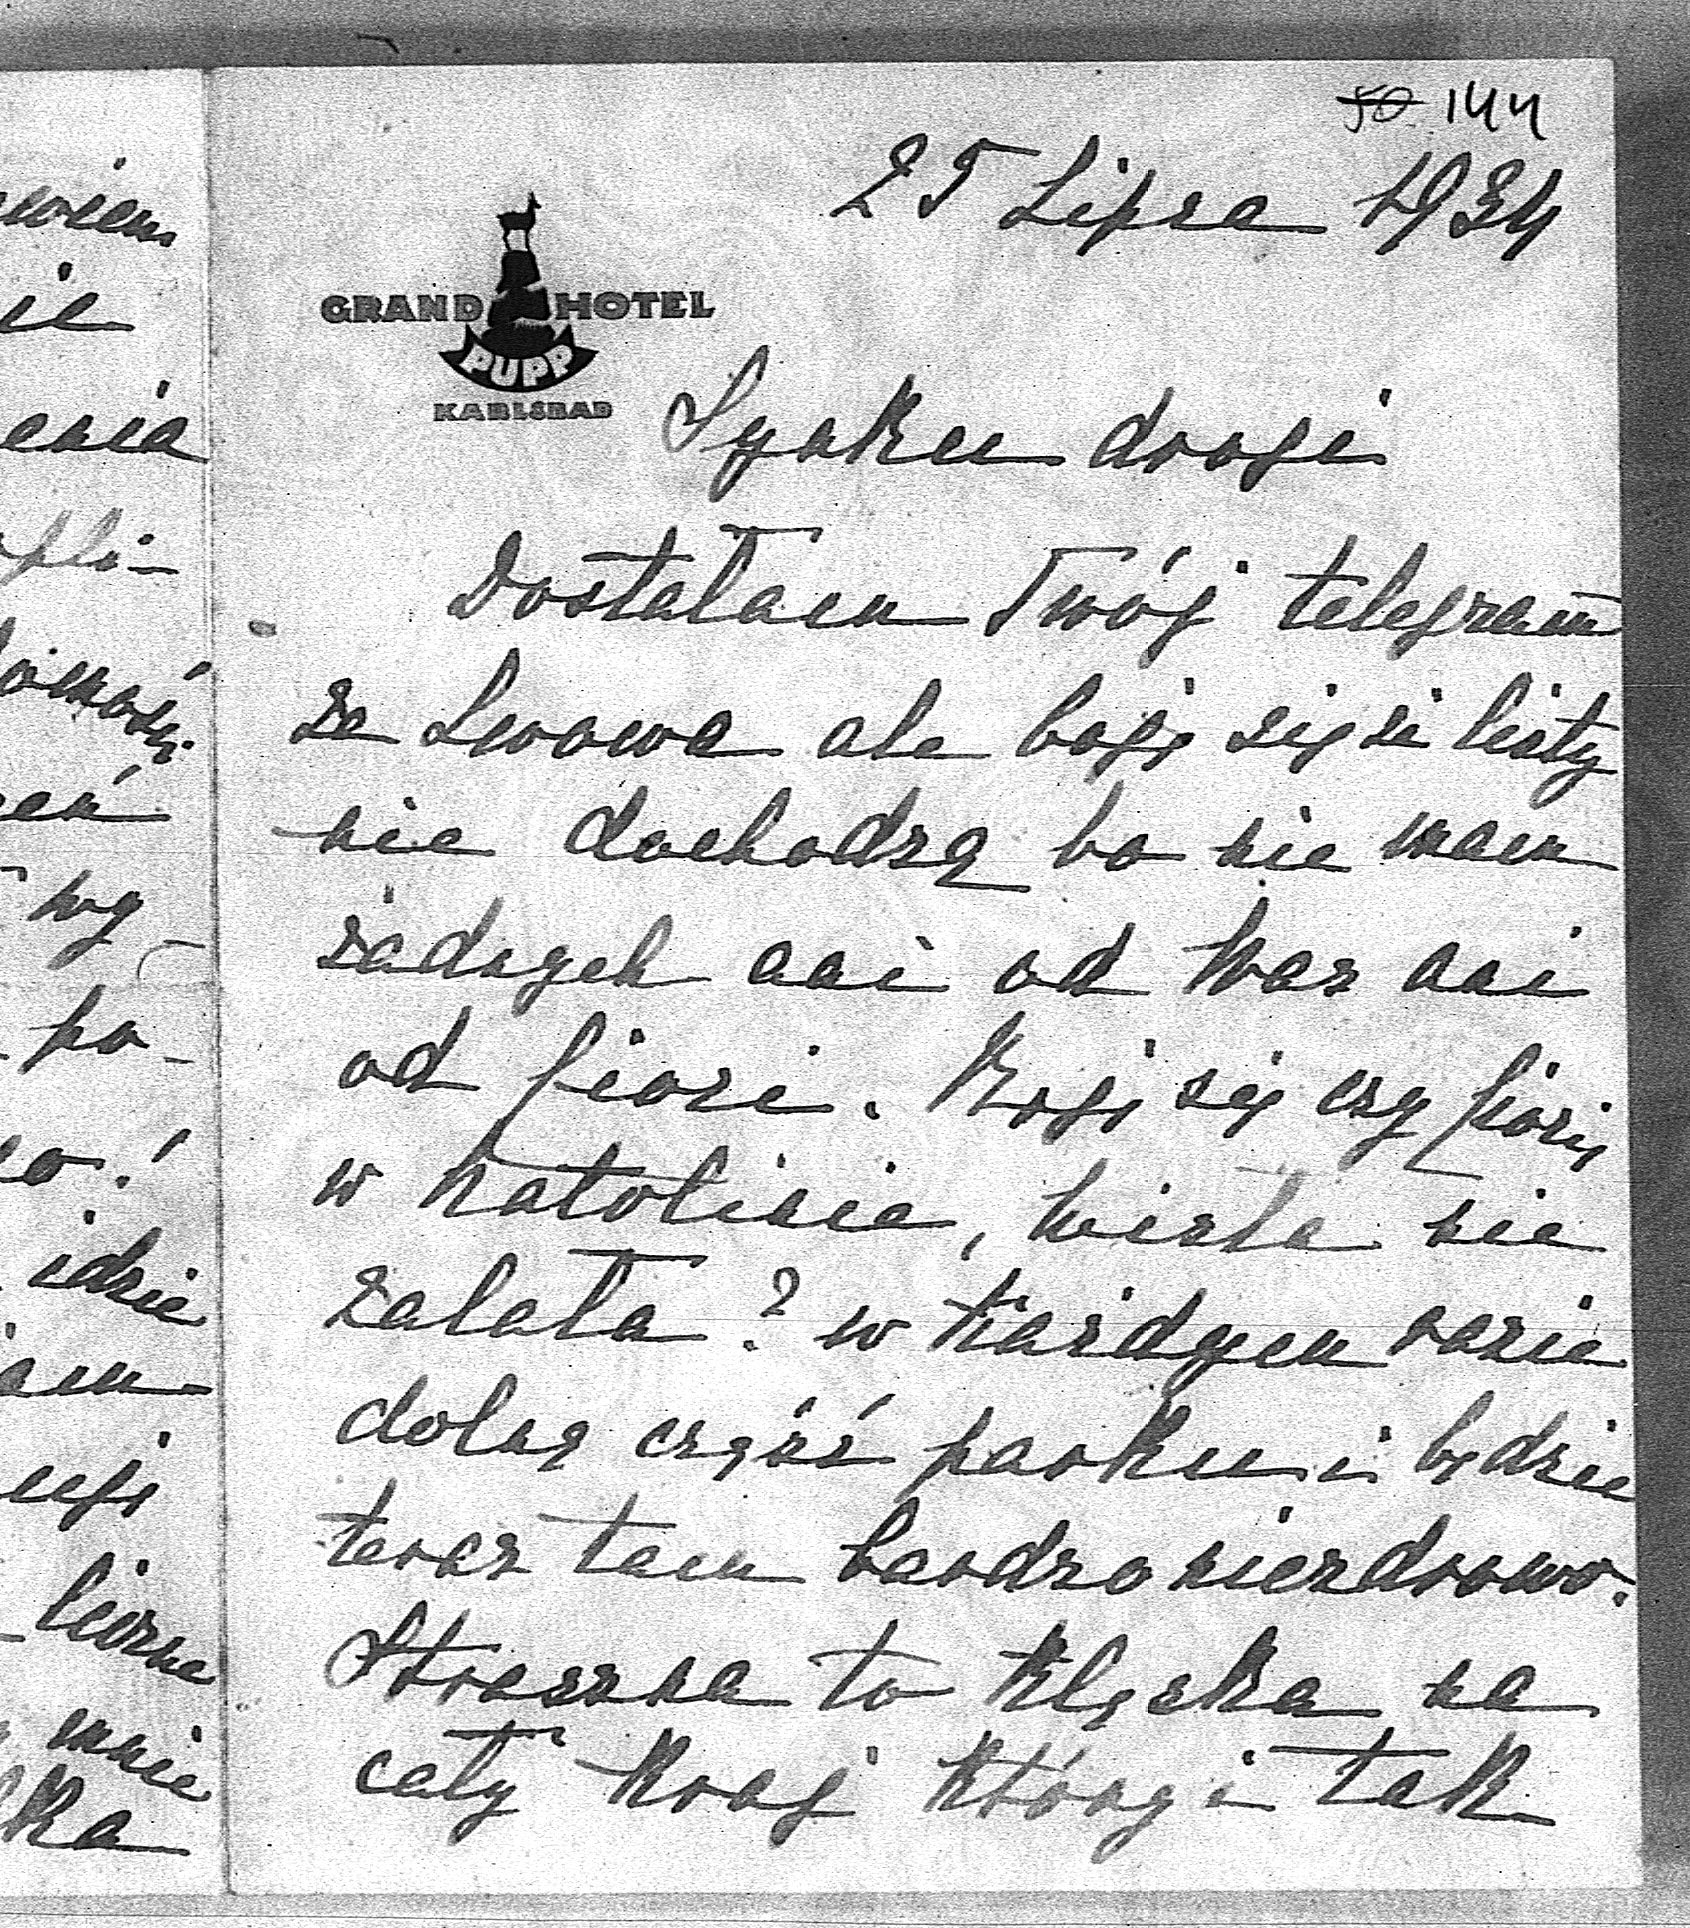 wiem
ie
enia
pli-
ny
po-
idzie
liczne
mnie
ka
50 144
25 Lipca 1934
GRAND HOTEL
PUPP
KARLSBAD
Synku drogi
Dostałam Twój telegram
ze Lwowa ale boję się że listy
nie dochodzą bo nie mam
żadnych ani od Was ani
od fiozi. Boję się czy fiozię
w Natolinie, Wisła nie
zalała? w każdym razie
dolną część parku i będzie
teraz tam bardzo niezdrowo.
Straszna to klęska na
cały kraj który i tak